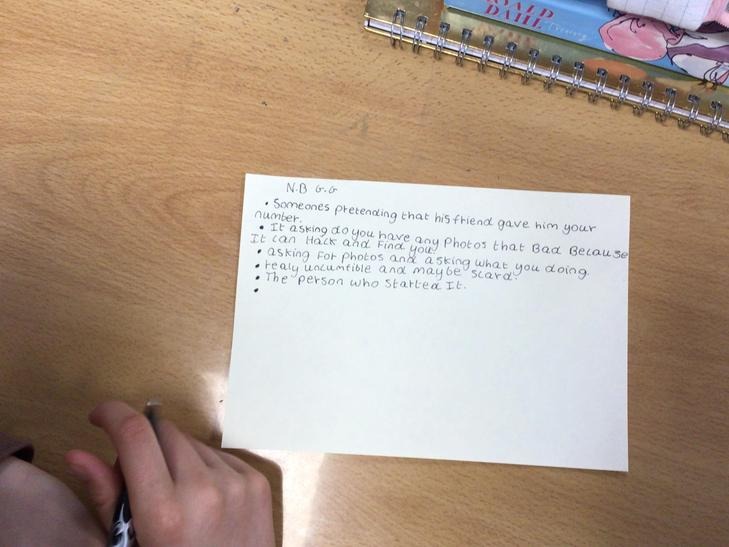 ROALD
DAHL
N.B G.G
• Someones pretending that his friend gave him your
number.
• It asking do you have any Photos that Bad Because
It can Hack and Find you.
• asking for photos and asking what you doing.
• realy uncumtible and maybe scard.
• The person who started It.
•